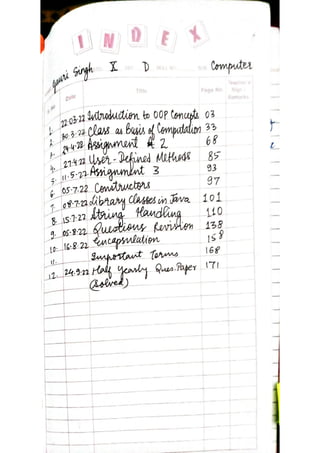 INDEX
Gauri Singh X D Computer
Date Title Page No. Teacher's Sign/ Remarks
1. 22.03.22 Introduction to OOP Concepts 03
2. 30.3.22 Class as Basis of Computation 33
3. 24.4.22 Assignment # 2 68
4. 27.4.22 User-Defined Methods 85
5. 11.5.22 Assignment 3 93
6. 05.7.22 Constructors 97
7. 08.7.22 Library Classes in Java 101
8. 15.7.22 String Handling 110
9. 05.8.22 Questions Revision 138
10. 16.8.22 Encapsulation 158
11. Important Terms 168
12. 24.9.22 Half Yearly Ques. Paper 171
(Solved)